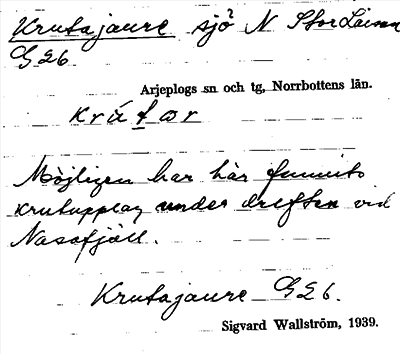 Krutajaure sjö N Stor Laisan
G26
Arjeplogs sn och tg, Norrbottens län.
Möjligen har här funnits
krutupplag under driften vid
Nasafjäll.
Krutajaure G26.
Sigvard Wallström, 1939.